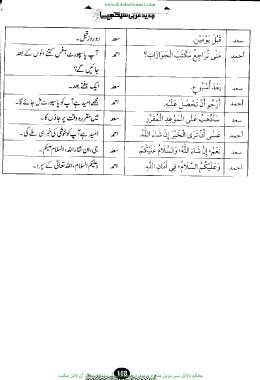 www.KitaboSunnat.com
جدید عربی سیکھیے
سعد قَبْلَ يَوْمَيْنِ. سعد دو روز قبل۔
أحمد مَتٰى تُرَاجِعُ مَكْتَبَ الْجَوَازَاتِ؟ احمد آپ پاسپورٹ آفس کتنے دنوں کے بعد
جائیں گے؟
سعد بَعْدَ أُسْبُوعٍ. سعد ایک ہفتے بعد۔
أحمد أَرْجُو أَنْ تَحْصُلَ عَلَيْهِ. احمد مجھے امید ہے آپ کو پاسپورٹ مل جائے گا۔
سعد سَأَذْهَبُ عَلَى الْمَوْعِدِ الْمُقَرَّرِ. سعد میں مقررہ وقت پر جاؤں گا۔
أحمد عَسٰى أَنْ تَرَى الْخَيْرَ إِنْ شَاءَ اللّٰهُ. احمد امید ہے آپ کو خوشی کی خبر ہی ملے گی۔
سعد نَعَمْ، إِنْ شَاءَ اللّٰهُ، وَالسَّلَامُ عَلَيْكُمْ. سعد جی، ان شاء اللہ، السلام علیکم۔
أحمد وَعَلَيْكُمُ السَّلَامُ، فِي أَمَانِ اللّٰهِ. احمد وعلیکم السلام، اللہ تعالیٰ کے سپرد۔
158